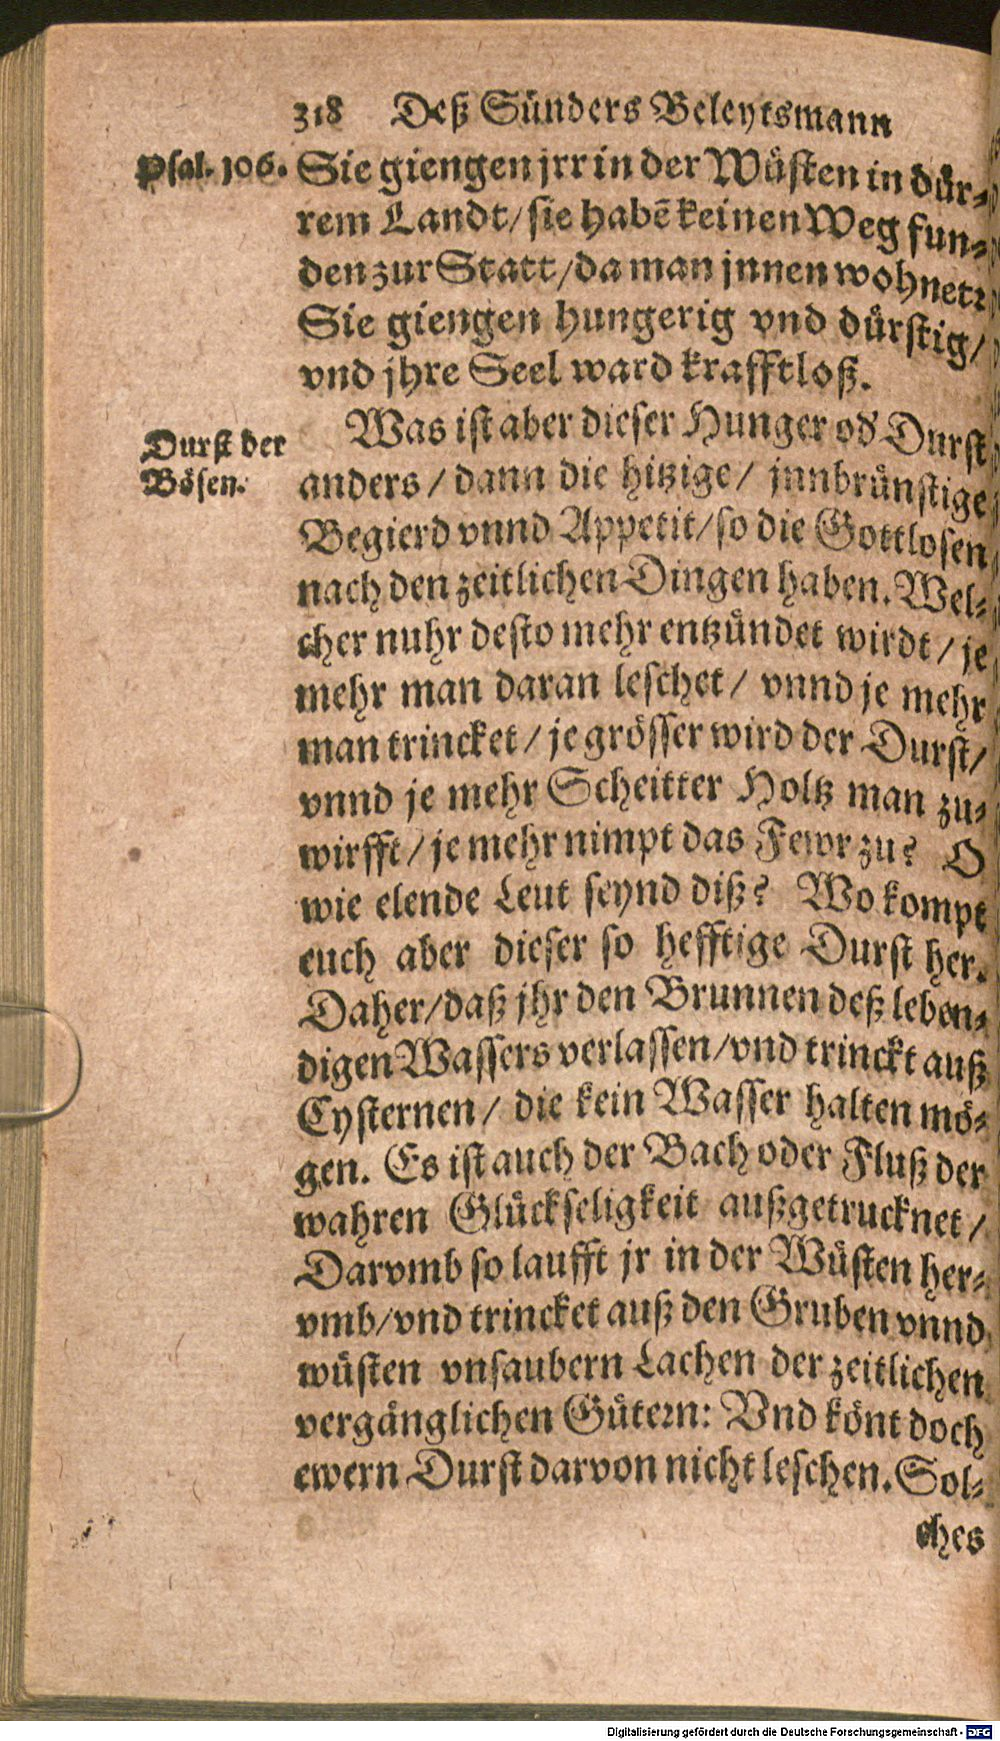 318 Deß Sünders Beleytsmann
Psal. 106.
Sie giengen jrr in der Wüsten in dür-
rem Landt/ sie habē keinen Weg fun-
den zur Statt/ da man jnnen wohnet:
Sie giengen hungerig vnd dürstig/
vnd jhre Seel ward krafftloß.
Durst der
Bösen.
Was ist aber dieser Hunger od' Durst
anders/ dann die hitzige/ jnnbrünstige
Begierd vnnd Appetit/ so die Gottlosen
nach den zeitlichen Dingen haben. Wel-
cher nuhr desto mehr entzündet wirdt/ je
mehr man daran leschet/ vnnd je mehr
man trincket/ je grösser wird der Durst/
vnnd je mehr Scheitter Holtz man zu-
wirfft/ je mehr nimpt das Fewr zu? O
wie elende Leut seynd diß? Wo kompt
euch aber dieser so hefftige Durst her.
Daher/ daß jhr den Brunnen deß leben-
digen Wassers verlassen/ vnd trinckt auß
Cysternen/ die kein Wasser halten mö-
gen. Es ist auch der Bach oder Fluß der
wahren Glückseligkeit außgetrucknet/
Darvmb so laufft jr in der Wüsten her-
vmb/ vnd trincket auß den Gruben vnnd
wüsten vnsaubern Lachen der zeitlichen
vergänglichen Gütern: Vnd könt doch
ewern Durst darvon nicht leschen. Sol-
ches
Digitalisierung gefördert durch die Deutsche Forschungsgemeinschaft - DFG